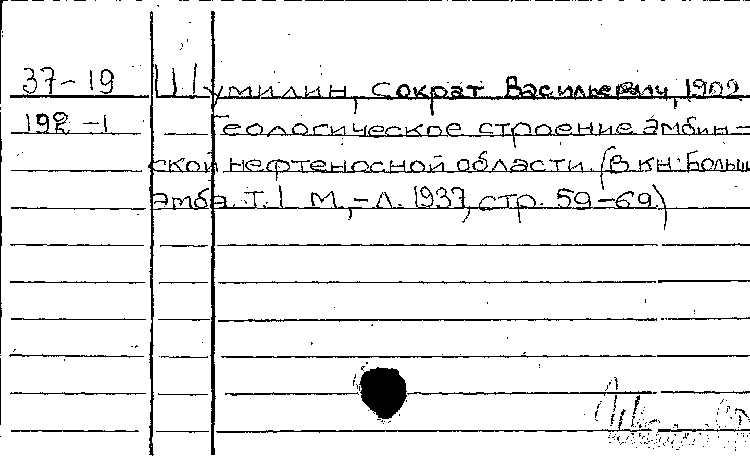 37-19 Шумилин, Сократ Васильевич, 1902
192-1 Геологическое строение эмбин-
ской нефтеносной области. (В кн: Больш
эмба. Т. I М,-Л. 1937, стр. 59-69)